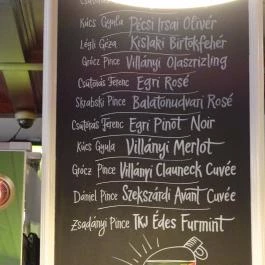 Kúcs Gyula Pécsi Irsai Olivér
Légli Géza Kislaki Birtokfehér
Grócz Pince Villányi Olaszrizling
Csutorás Ferenc Egri Rosé
Skrabski Pince Balatonudvari Rosé
Csutorás Ferenc Egri Pinot Noir
Kúcs Gyula Villányi Merlot
Grócz Pince Villányi Clauneck Cuvée
Dániel Pince Szekszárdi Avant Cuvée
Zsadányi Pince TKJ Édes Furmint